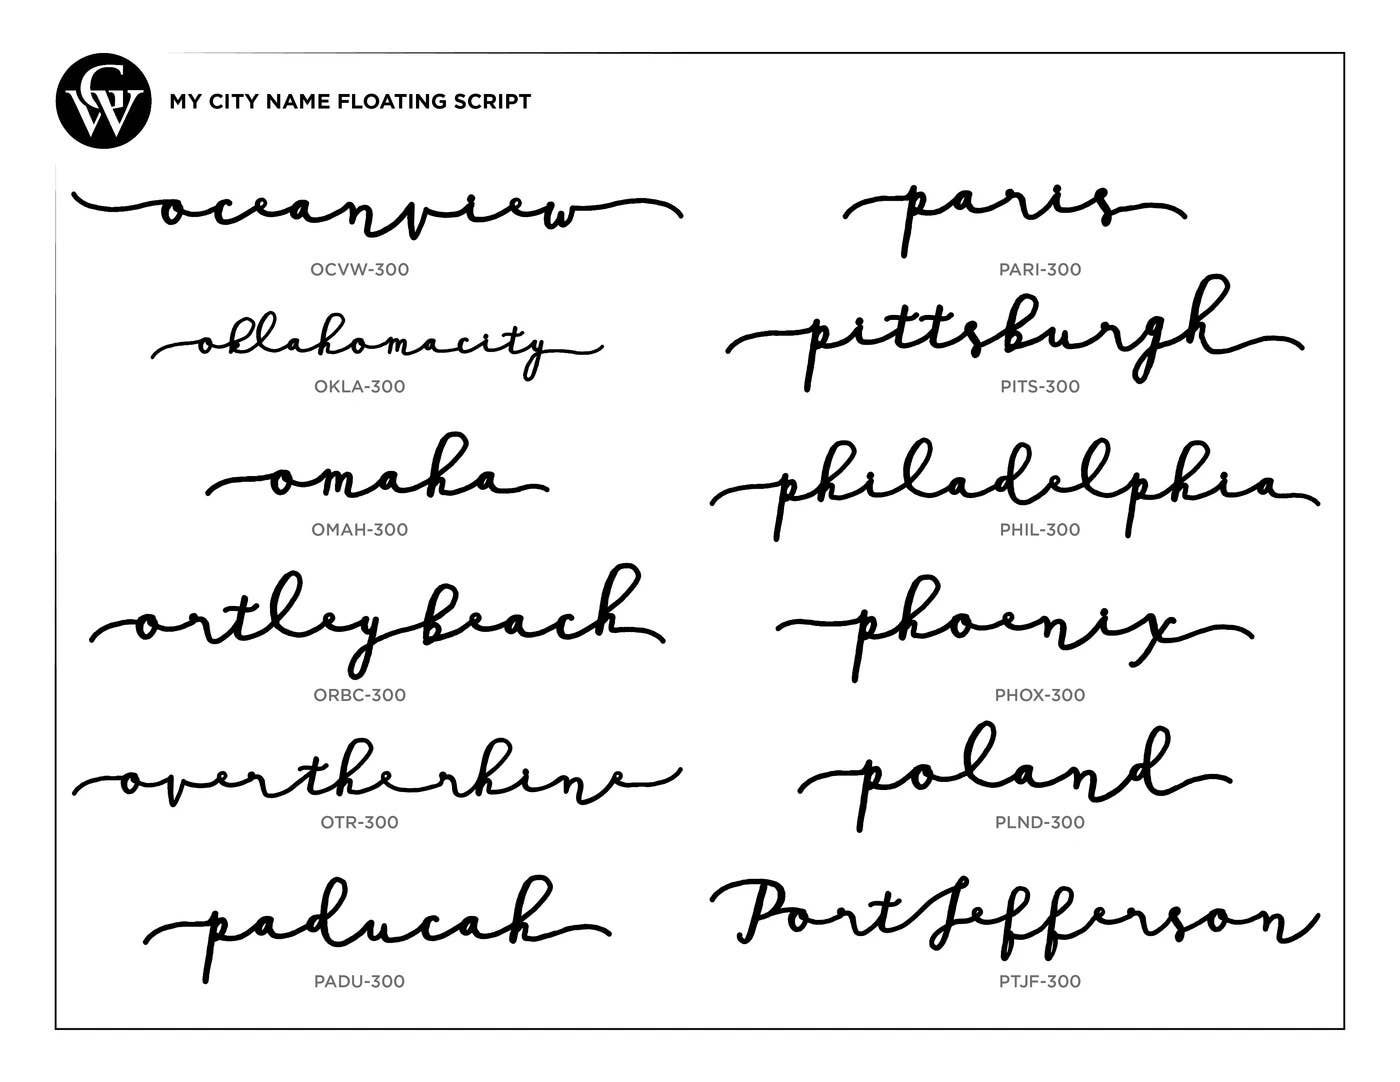 GW
MY CITY NAME FLOATING SCRIPT
oceanview
OCVW-300
oklahomacity
OKLA-300
omaha
OMAH-300
ortleybeach
ORBC-300
overtherhine
OTR-300
paducah
PADU-300
paris
PARI-300
pittsburgh
PITS-300
philadelphia
PHIL-300
phoenix
PHOX-300
poland
PLND-300
PortJefferson
PTJF-300